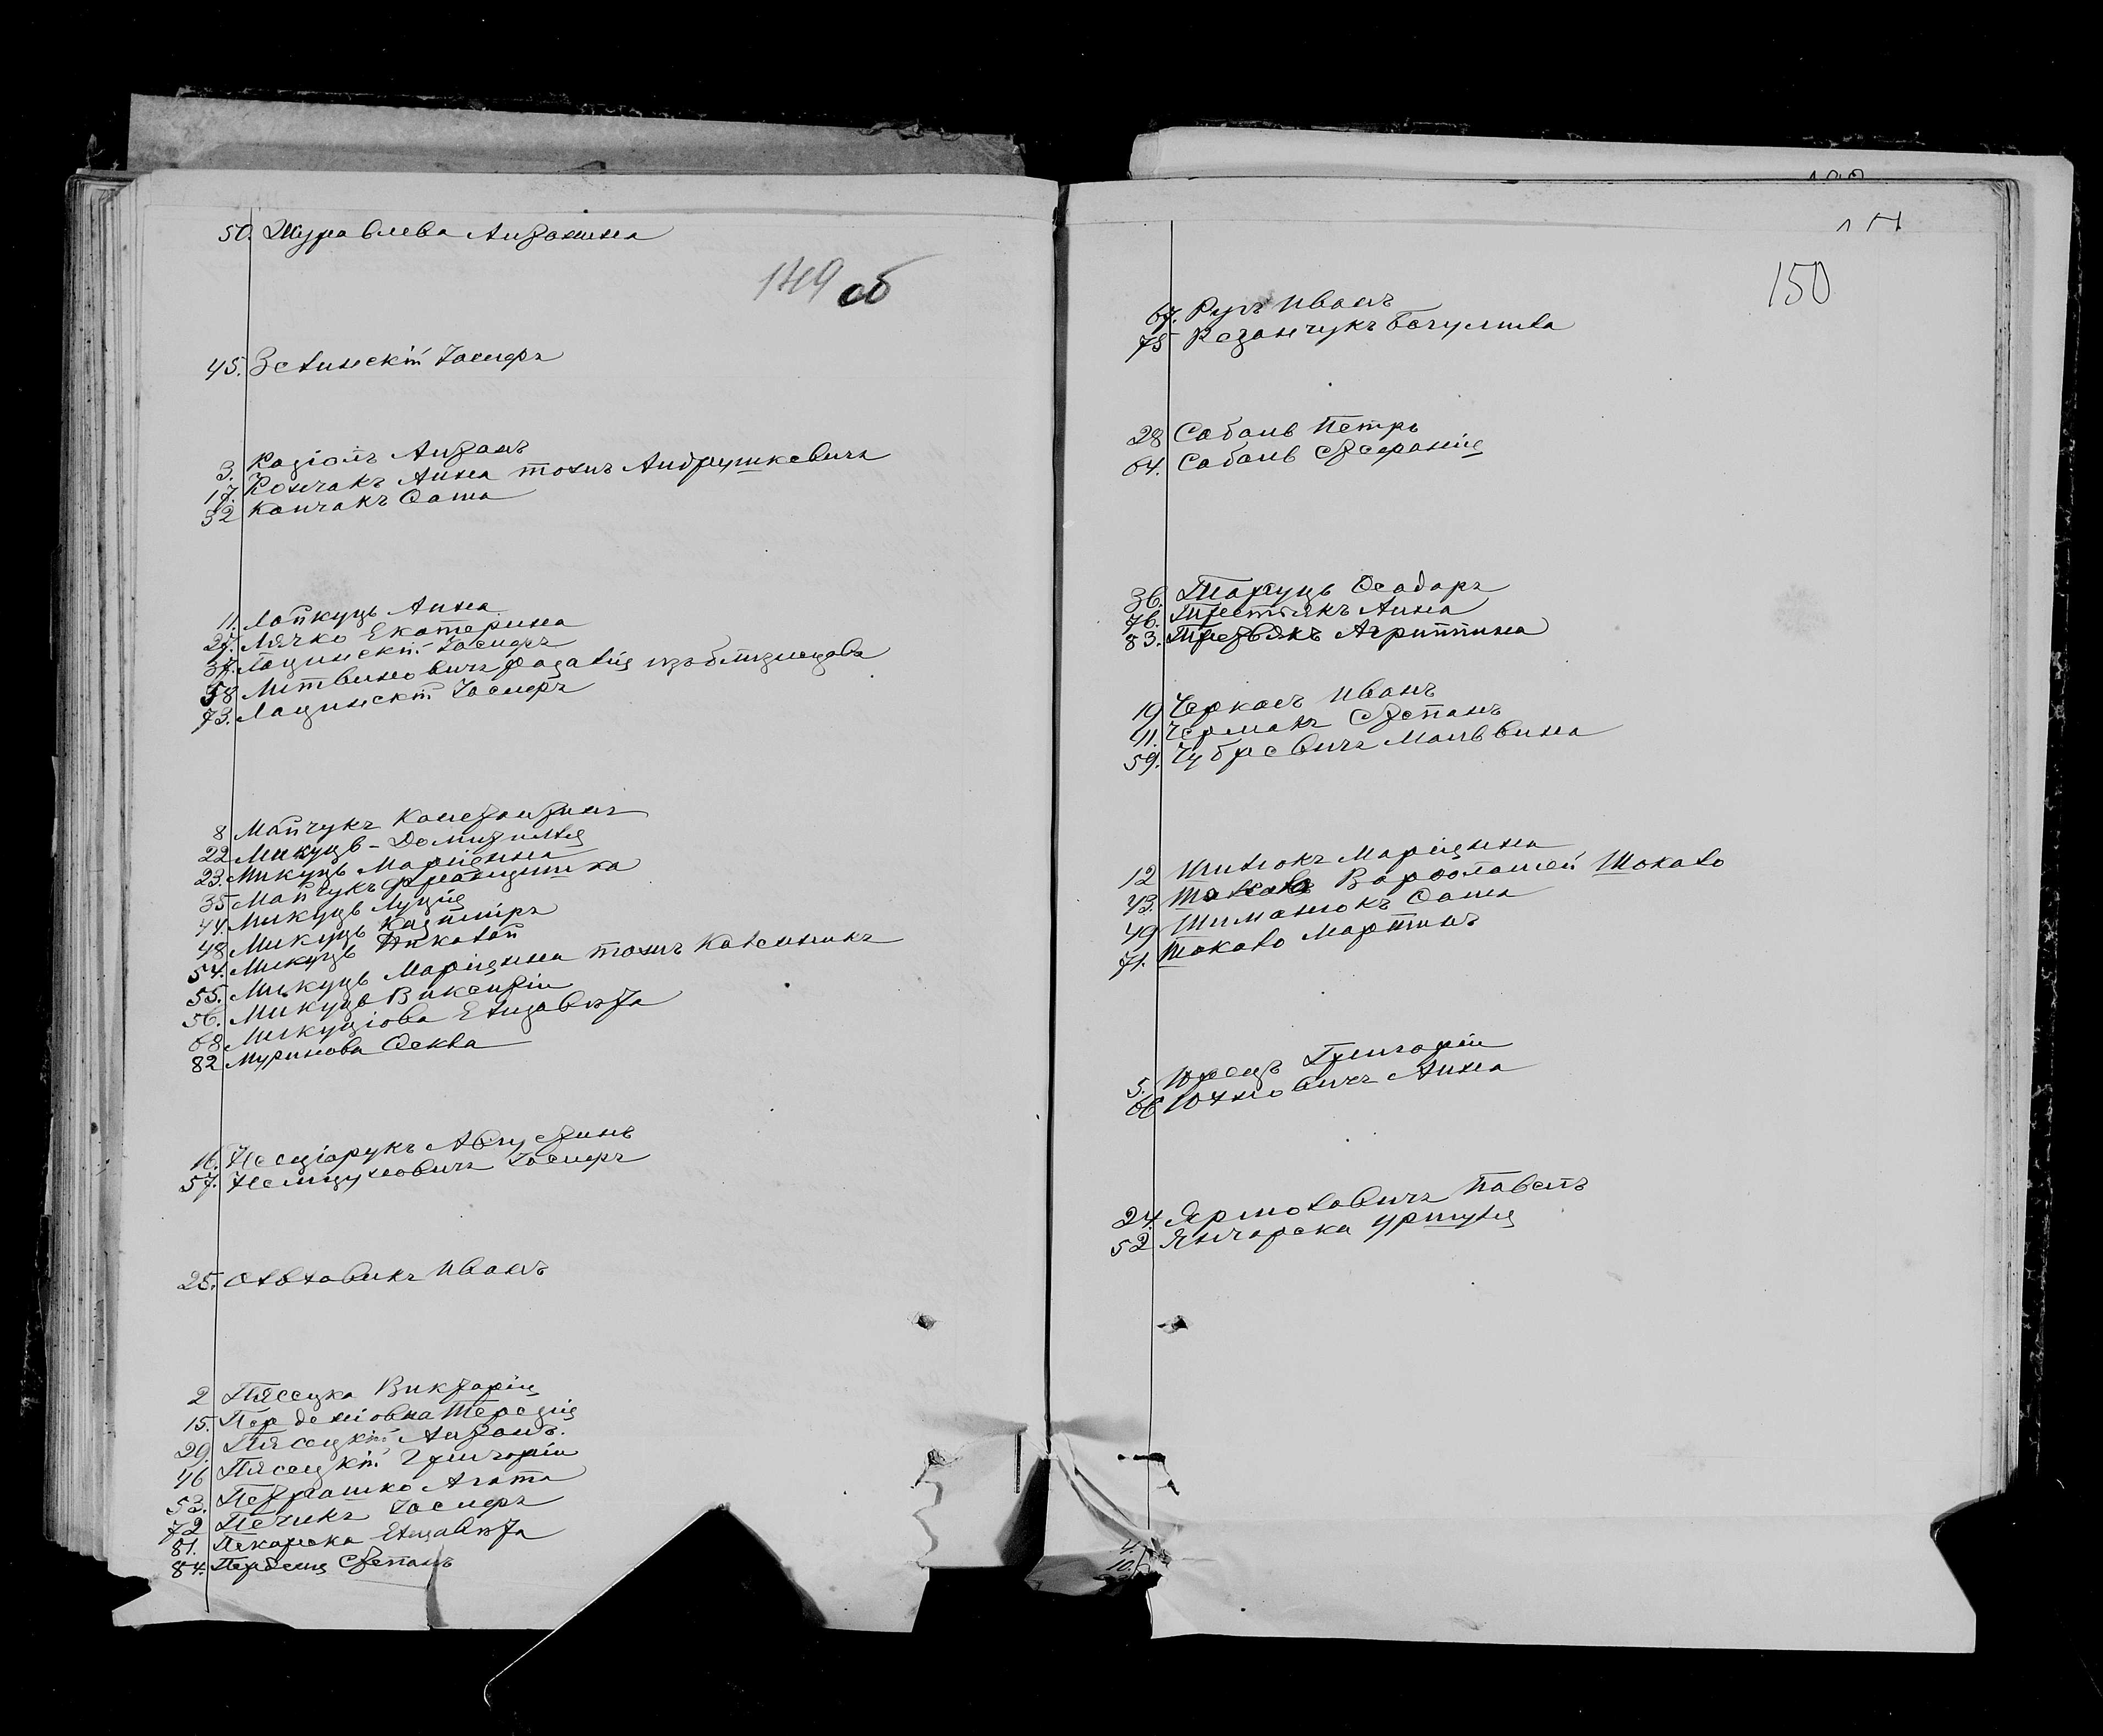 50. Журавлева Антонина
149 об
45. Зелинскій Іосифъ
3. Козіолъ Антонъ
17. Кончакъ Анна тожъ Андрушкевичъ
32 Кончакъ Фома
11. Лайкуць Анна
27. Лячко Екатерина
37. Лощинскій Іосифъ
58 Литвиновичъ Розалія
73. Лащинскій Іосифъ
8 Майчукъ Константинъ
22 Микуць - Домицилія
23. Микуць Маріанна
35 Майчукъ Францишка
44. Микуць Луція
48 Микуць Казиміръ
54. Микуць Николай
55. Микуць Маріанна тожъ
56. Микуць Викентій
68 Микуціова Елизавѣта
82 Муринова Фекла
16. Несцёрукъ Августинъ
57. Немцуновичъ Іосифъ
25. Ольховикъ Иванъ
2 Пясецка Викторія
15. Терезія
29. Пясецкій Антонъ.
46 Пясецкій Григорій
53. Петрашко Агата
72 Печикъ Іосифъ
81. Пекарска Елизавѣта
84. Стефанъ
150
67. Руль Иванъ
75 Розанчукъ Богумила
28 Соболь Петръ
64. Соболь Стефанія
36. Тамуць Феодоръ
76. Третьякъ Анна
83. Третьякъ Агриппина
19 Черкасъ Иванъ
41. Чермакъ Степанъ
59. Чубревичъ Мальвина
12 Шилюкъ Маріанна
43. Шокало Варфоломей Шокало
49 Шиманюкъ Фома
71. Шокало Мартинъ
5. Юрець Григорій
66 Юхновичъ Анна
24. Ярмоловичъ Павелъ
52 Янчарска Уршуля
4.
10.